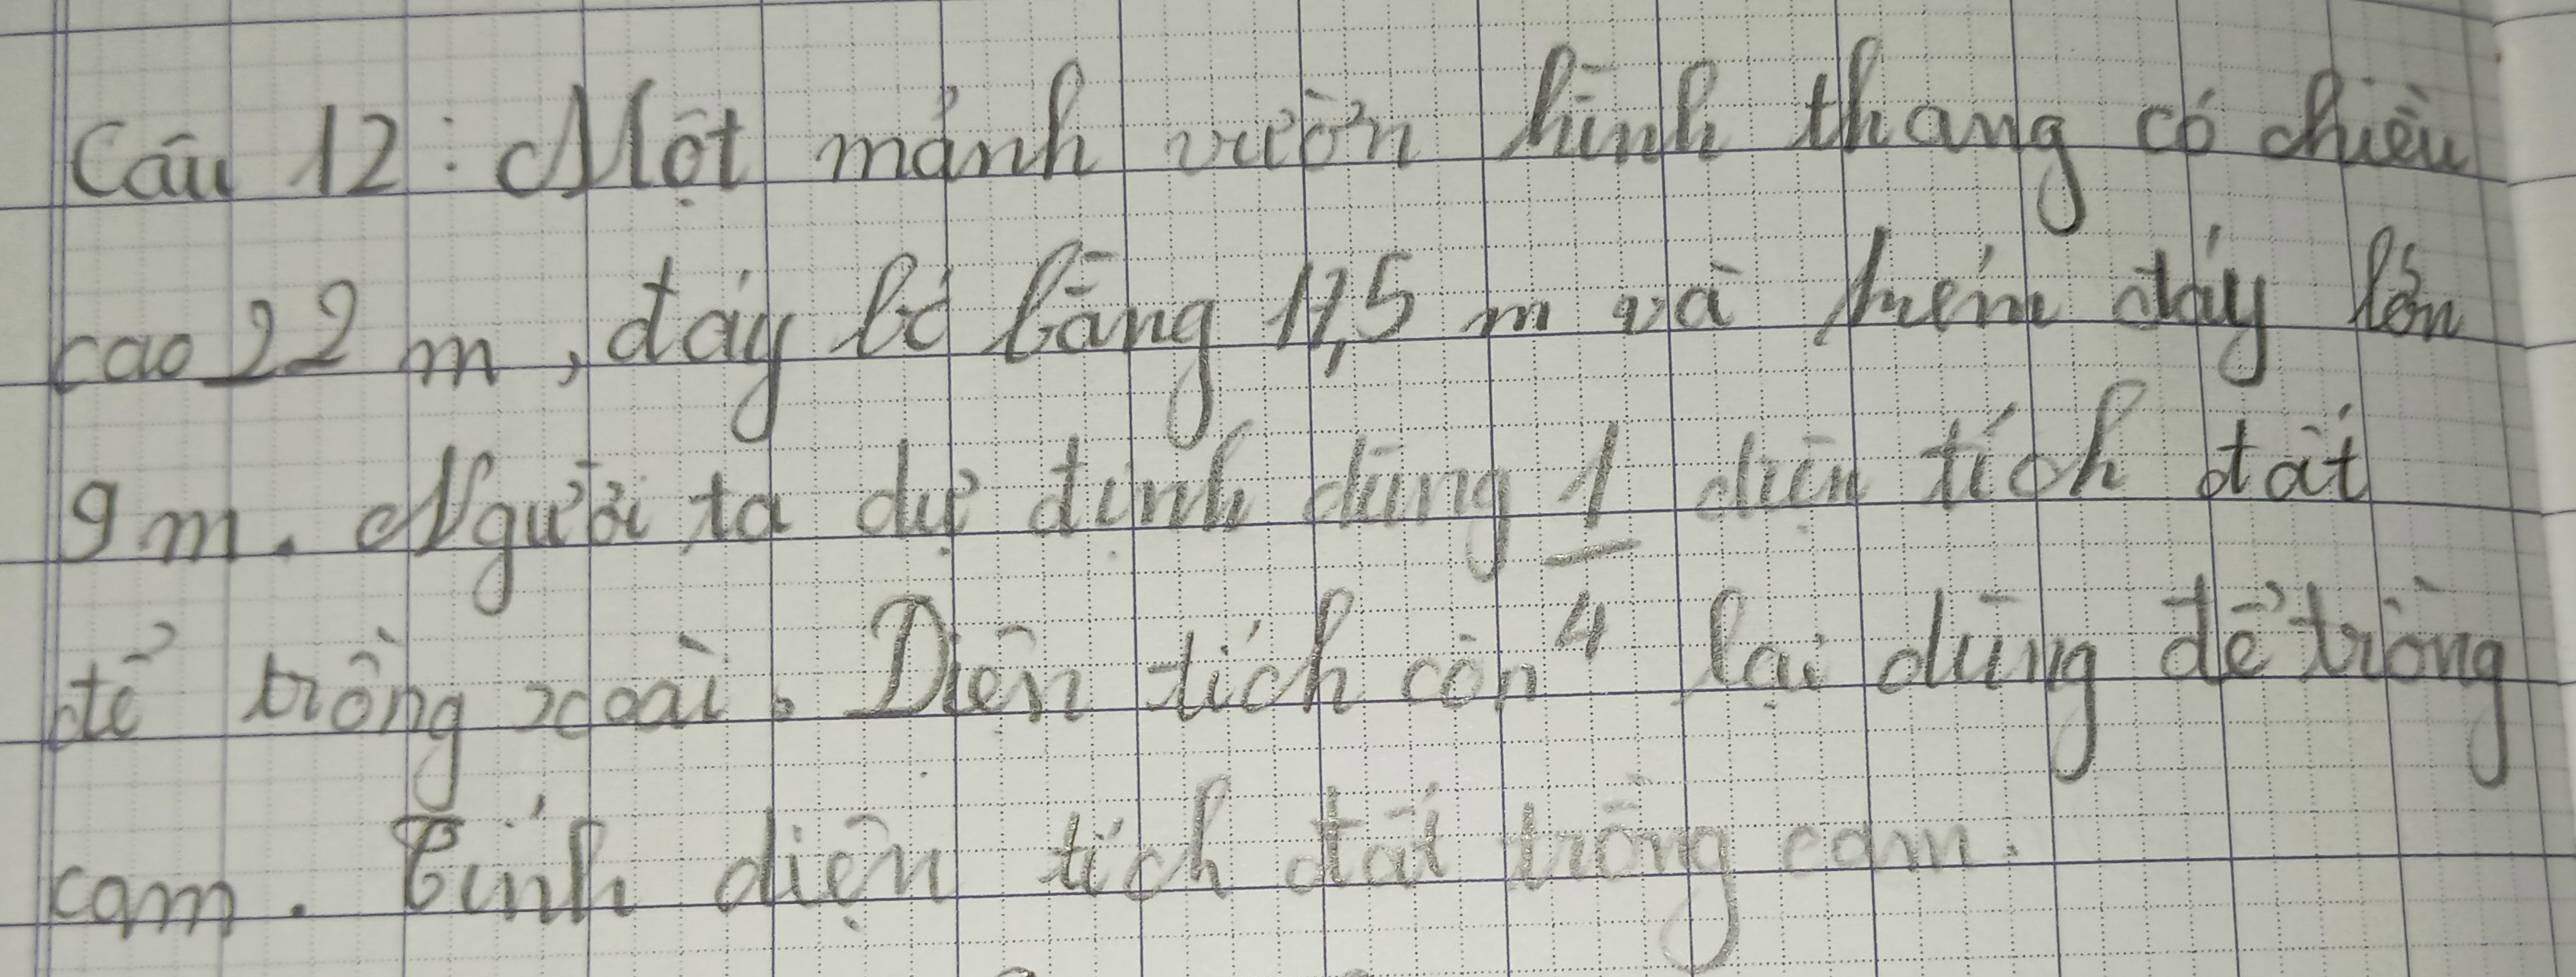 Câu 12: Một mảnh vườn hình thang có chiều
cao 22 m, đáy bé bằng 17,5 m và kém đáy lớn
9 m. Người ta dự định dùng 1/4 diện tích đất
để trồng xoài. Diện tích còn lại dùng để trồng
cam. Tính diện tích đất trồng cam.